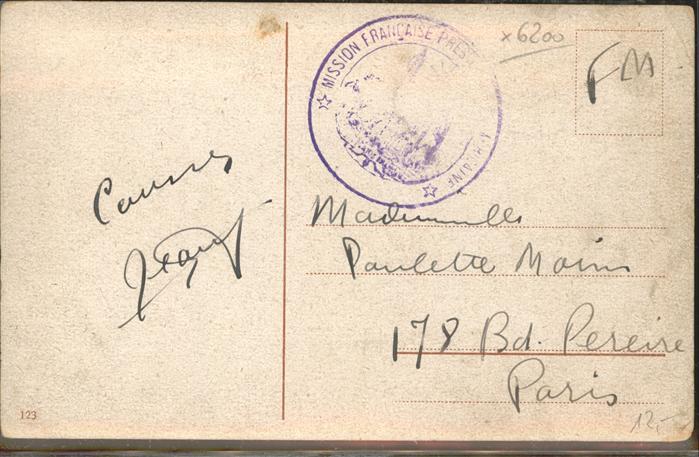 MISSION FRANÇAISE PRÈS
x6200
FM
Mademoiselle
Paulette Moins
178 Bd. Pereire
Paris
123
12,-